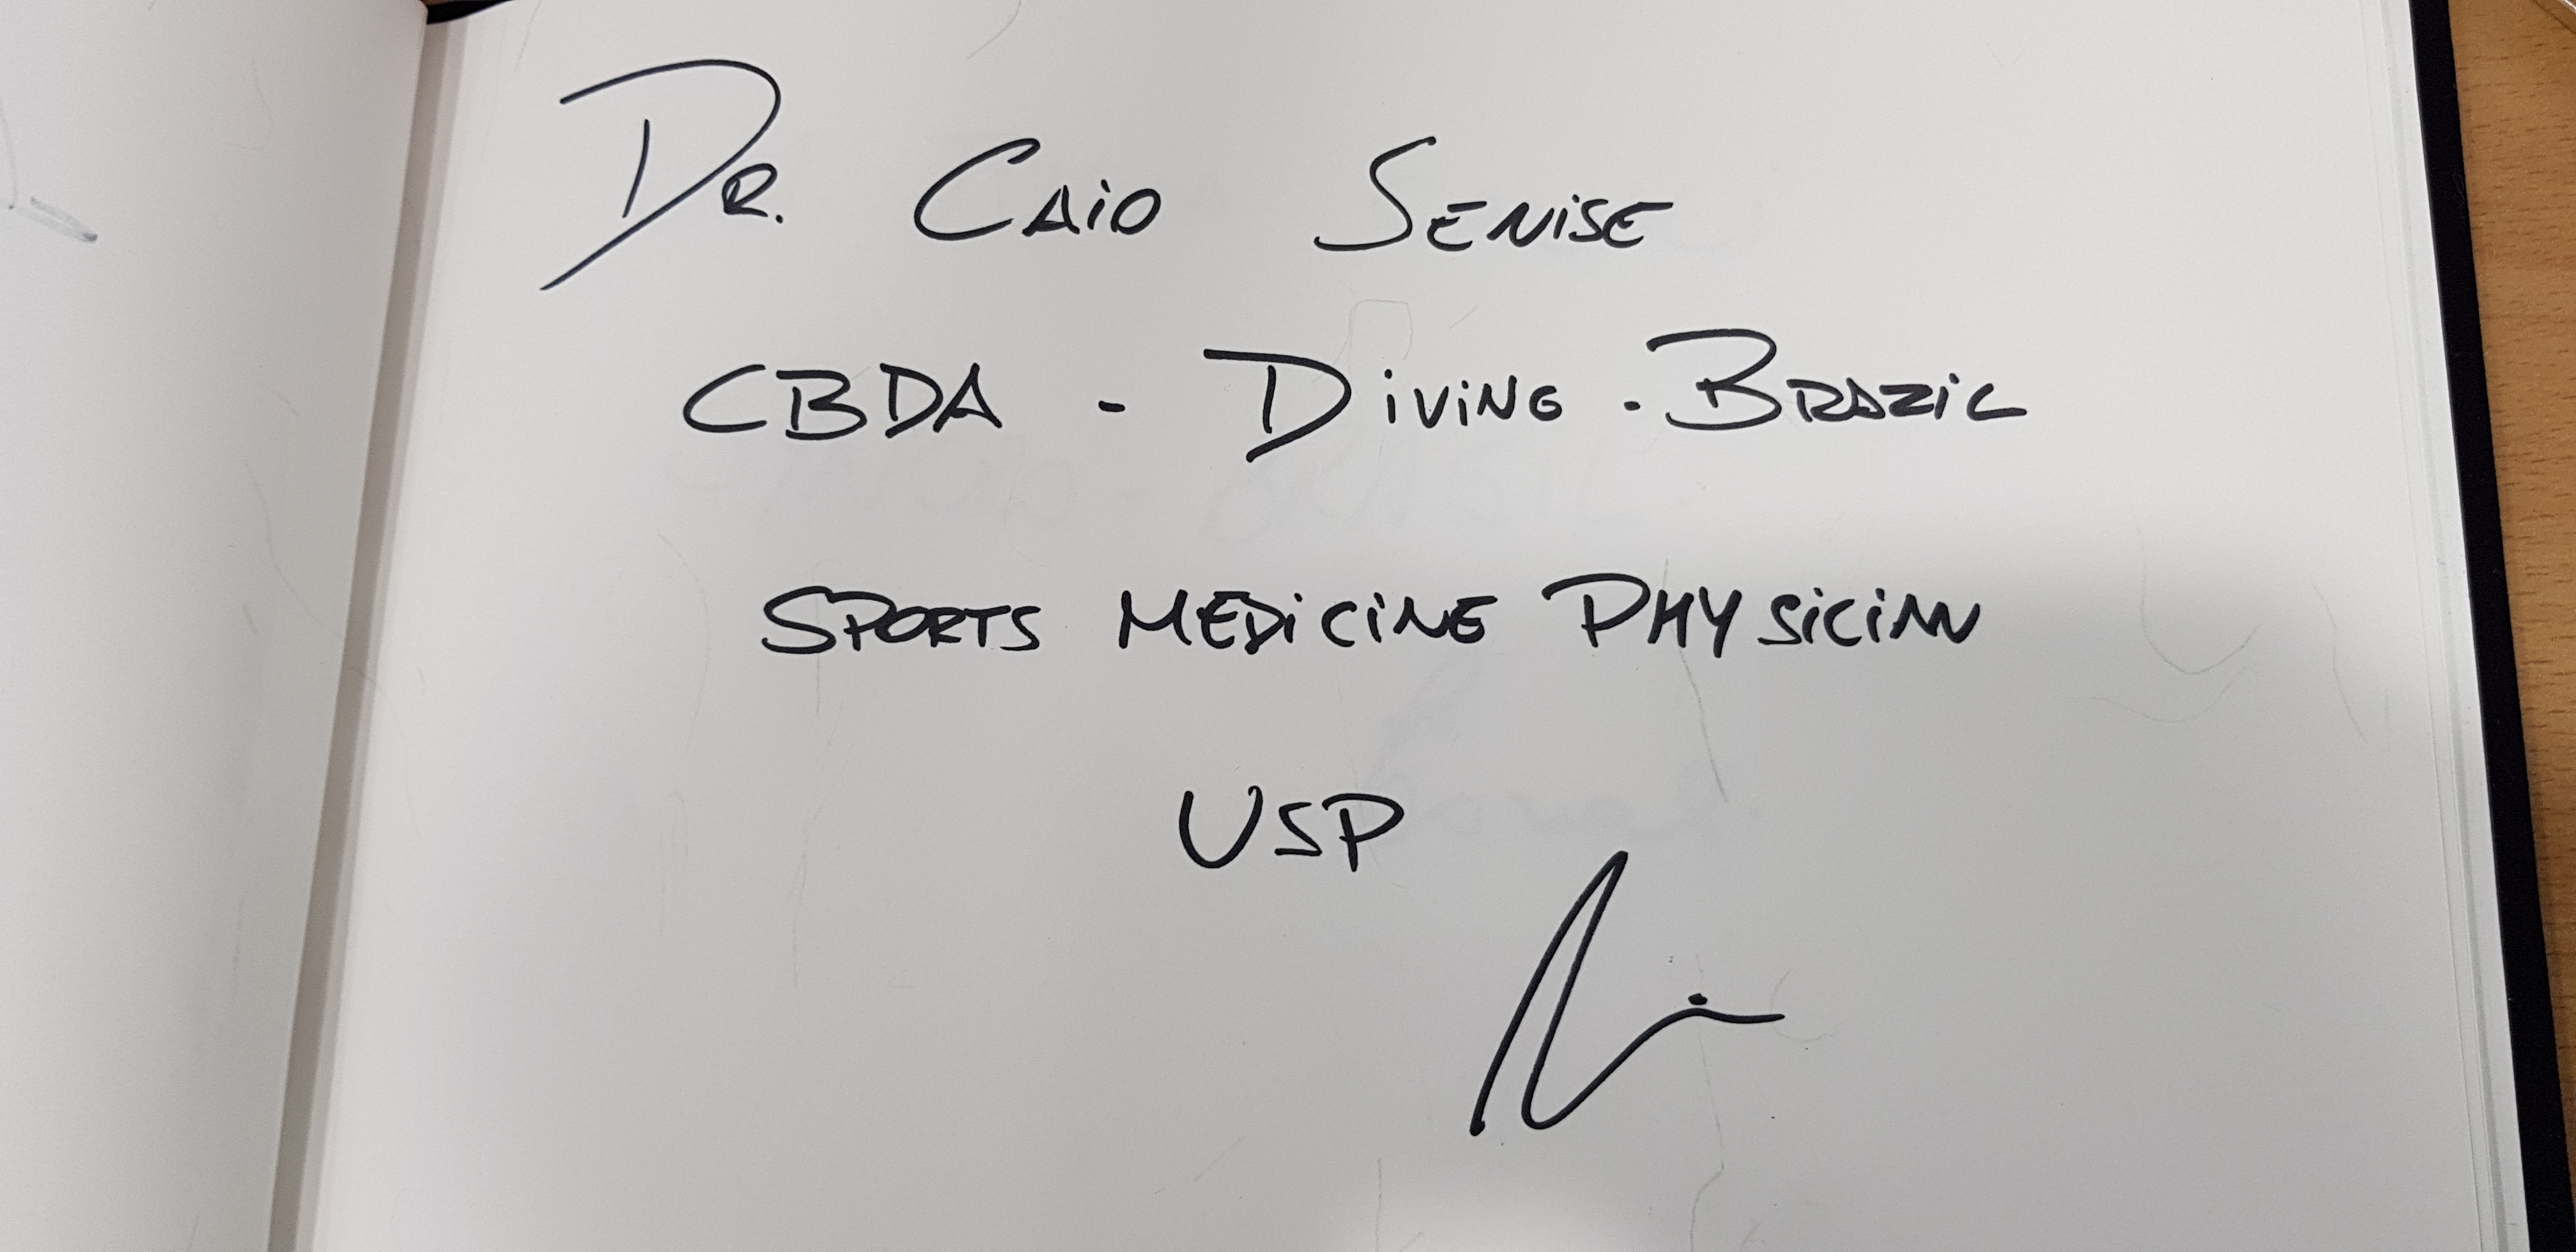 DR. CAIO SENISE
CBDA - DIVING - BRAZIL
SPORTS MEDICINE PHYSICIAN
USP